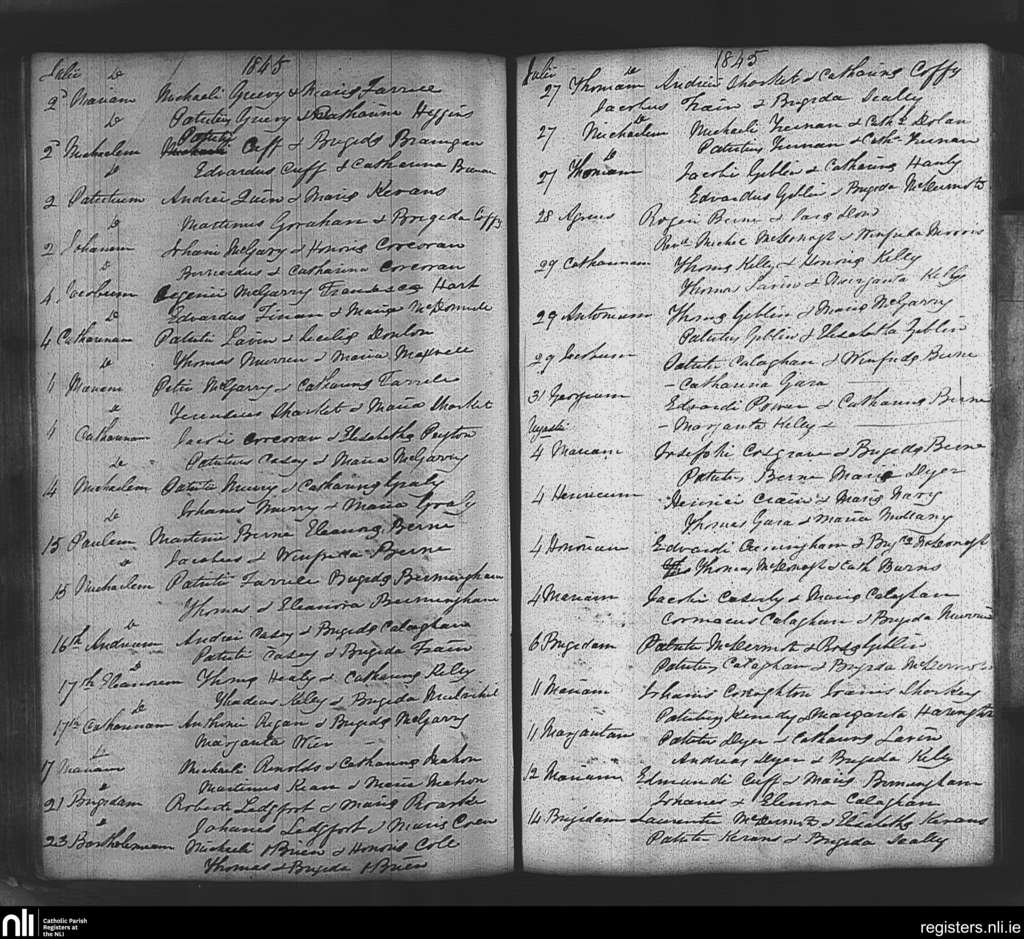 1845
Julii Do
2d Mariam Michaeli Guevy & Maria Farrell
Do Patritius Guevy & Catharina Higgins
Patritii
2d Michaelem Cuff & Brigida Branigan
Do Edvardus Cuff & Catharina
2 Patritium Andrei Quin & Maria Kerans
Do Martinus Gorahan & Brigida Coffy
2 Johanem Johani McGary & Honora Corcoran
Do & Catharina Corcoran
4 Jacobum Eugenii McGarry Francisca Hart
Do Edvardus Finan & Maria McDermude
4 Catharinam Patritii Lavin & Cecilia Donlon
Do Thomas Murren & Maria Maxwell
11 Mariam Petri McGarry & Catharina Farrell
Do Sharket & Maria Sharket
11 Catharinam Jacobi Corcoran & Elisabetha Peyton
Do Patritius Casey & Maria McGarry
4 Michaelem Patritii Murry & Catharina Graly
Do Johanes Murry & Maria Graly
15 Paulem Martini Berne Eleanora Berne
Do Jacobus & Winifrida Berne
15 Michaelem Patritii Farrell Brigida Bermingham
Thomas & Eleanora Bermingham
16th Andream Andrei Casey & Brigida Calaghan
Do Patritii Casey & Brigida Frain
17th Eleanorem Thoma Healy & Catharina Kelly
Do Thadeus Kiley & Brigida Mulvihil
17th Catharinam Anthonii Regan & Brigida McGarry
Margarita Wier
17 Mariam Michaeli Arnolds & Catharina Mahon
Martinus Kean & Maria Mahon
21 Brigidam Roberti Ledgfort & Maria Roarke
Do Johanes Ledgfort & Maria Coen
23 Bartholemeum Michaeli OBrien & Honora Cole
Thomas & Brigida OBrien
1845
Julii Do
27 Thomam Andrei Sharket & Catharina Coffy
Jacobus Frain & Brigida Scally
27 Michaelem Michaeli Keenan & Cath Dolan
Do Patritius Keenan & Cath Keenan
27 Thomam Jacobi Giblin & Catharina Hanly
Do Edvardus Giblin & Brigida McDermott
28 Agnus Rogeri Berne &
Revd Michael McDonagh & Winifrida Morris
29 Catharinam Thoma Kelly & Honora Kelly
Thomas Lavin & Margarita Kelly
29 Antonium Thoma Giblin & Maria McGarry
Patritius Giblin & Elisabetta Giblin
29 Jacobum Patritii Calaghan & Winifrida Berne
- Catharina Gara
31 Georgium Edvardi Power & Catharina Berne
- Margarita Kiley -
Augusti
4 Mariam Josephi Cosgrave & Brigida Berne
Patritius Berne Maria Dyer
4 Henricum Heinrici Crain & Maria Nary
Thomas Gara & Maria Mullany
4 Honoriam Edvardi Cuningham & McDonagh
Thomas McDonagh & Cath Burns
4 Mariam Jacobi Caserly & Maria Calaghan
Cormacus Calaghan & Brigida
6 Brigidam Patritii McDermott & Rosa Giblin
Patritius Calaghan & Brigida McDermott
11 Mariam Johanis Creighton Sharkey
Patritius Kenedy & Margarita Harington
11 Margaritam Patritii Dyer & Catharina Lavin
Andreas Dyer & Brigida Kely
12 Mariam Edmundi Cuff & Maria Bermingham
Johanes & Elenora Calaghan
14 Brigidam Laurentii McDermott & Elisabetha Kerans
Patritii Kerans & Brigida Scally
nli
Catholic Parish
Registers at
the NLI
registers.nli.ie